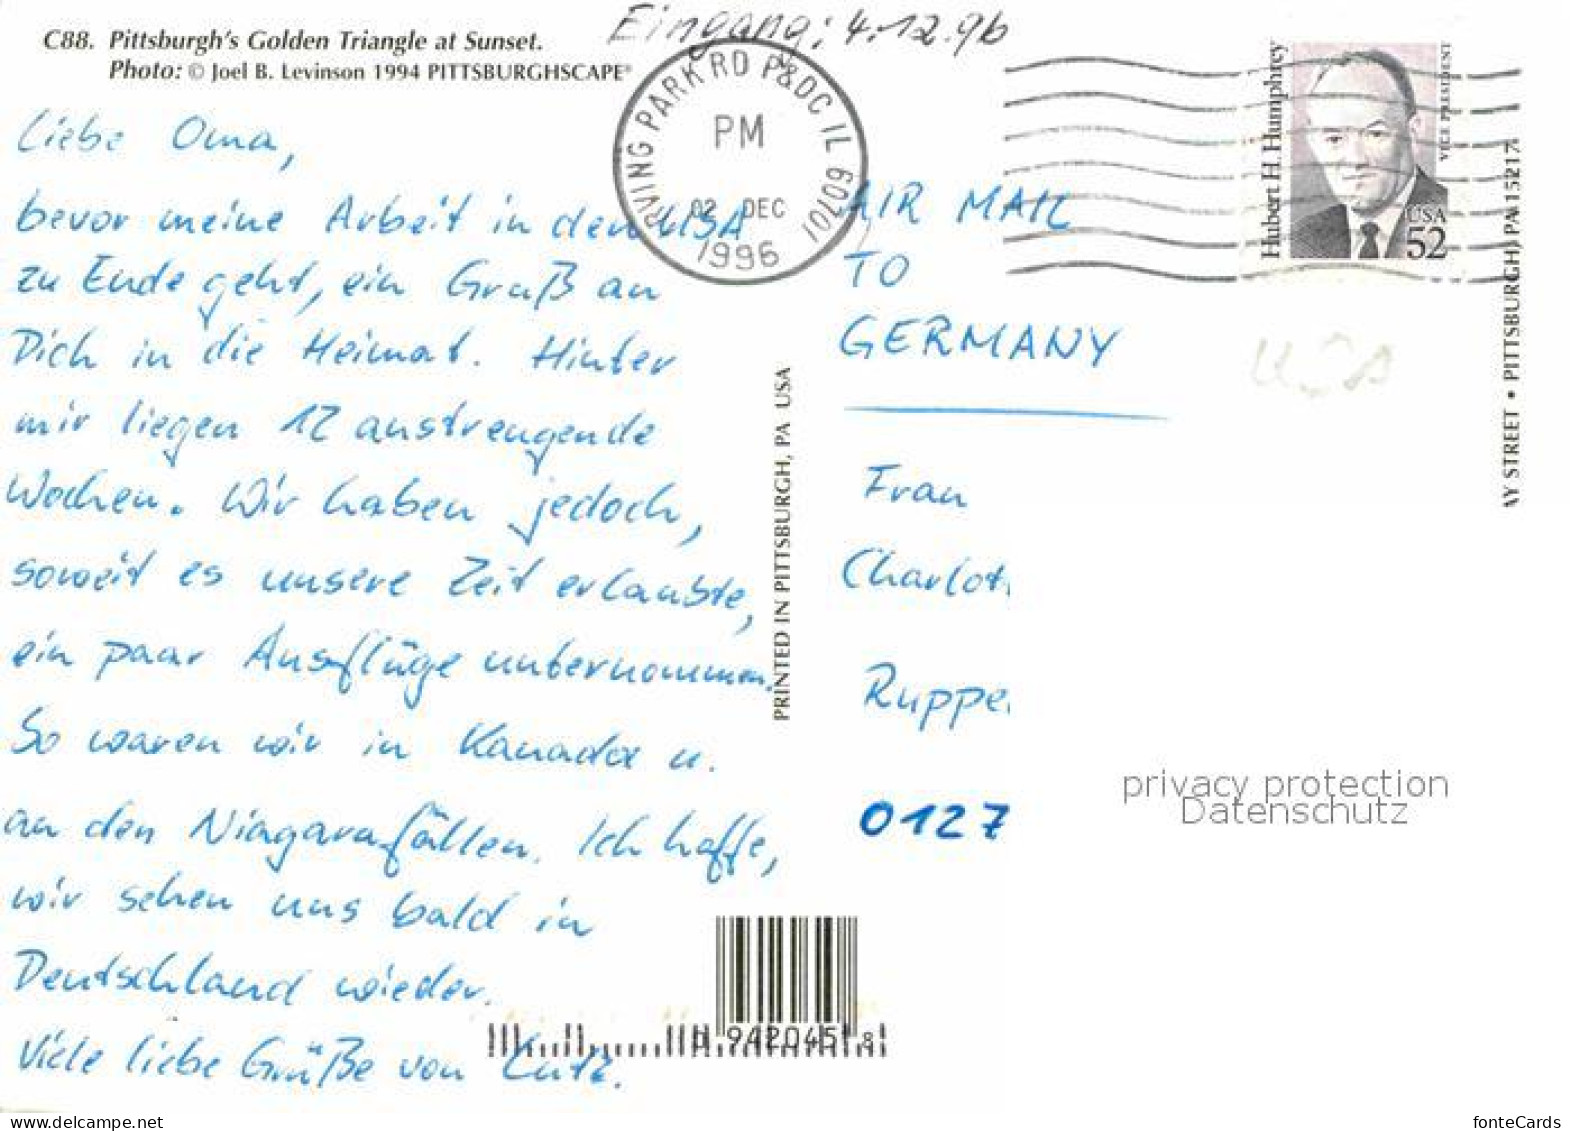 C88. Pittsburgh's Golden Triangle at Sunset.
Photo: © Joel B. Levinson 1994 PITTSBURGHSCAPE®
Eingang: 4.12.96
IRVING PARK RD P&DC IL 60701
PM
02 DEC
1996
Hubert H. Humphrey
VICE PRESIDENT
USA
52
Liebe Oma,
bevor meine Arbeit in den USA
zu Ende geht, ein Gruß an
Dich in die Heimat. Hinter
mir liegen 12 anstrengende
Wochen. Wir haben jedoch,
soweit es unsere Zeit erlaubte,
ein paar Ausflüge unternommen.
So waren wir in Kanada u.
an den Niagarafällen. Ich hoffe,
wir sehen uns bald in
Deutschland wieder.
Viele liebe Grüße von Lutz.
PRINTED IN PITTSBURGH, PA USA
AIR MAIL
TO
GERMANY
USA
Frau
Charlot
Ruppe
0127
AY STREET • PITTSBURGH, PA 15217
privacy protection
Datenschutz
0 942045 8
www.delcampe.net
fonteCards